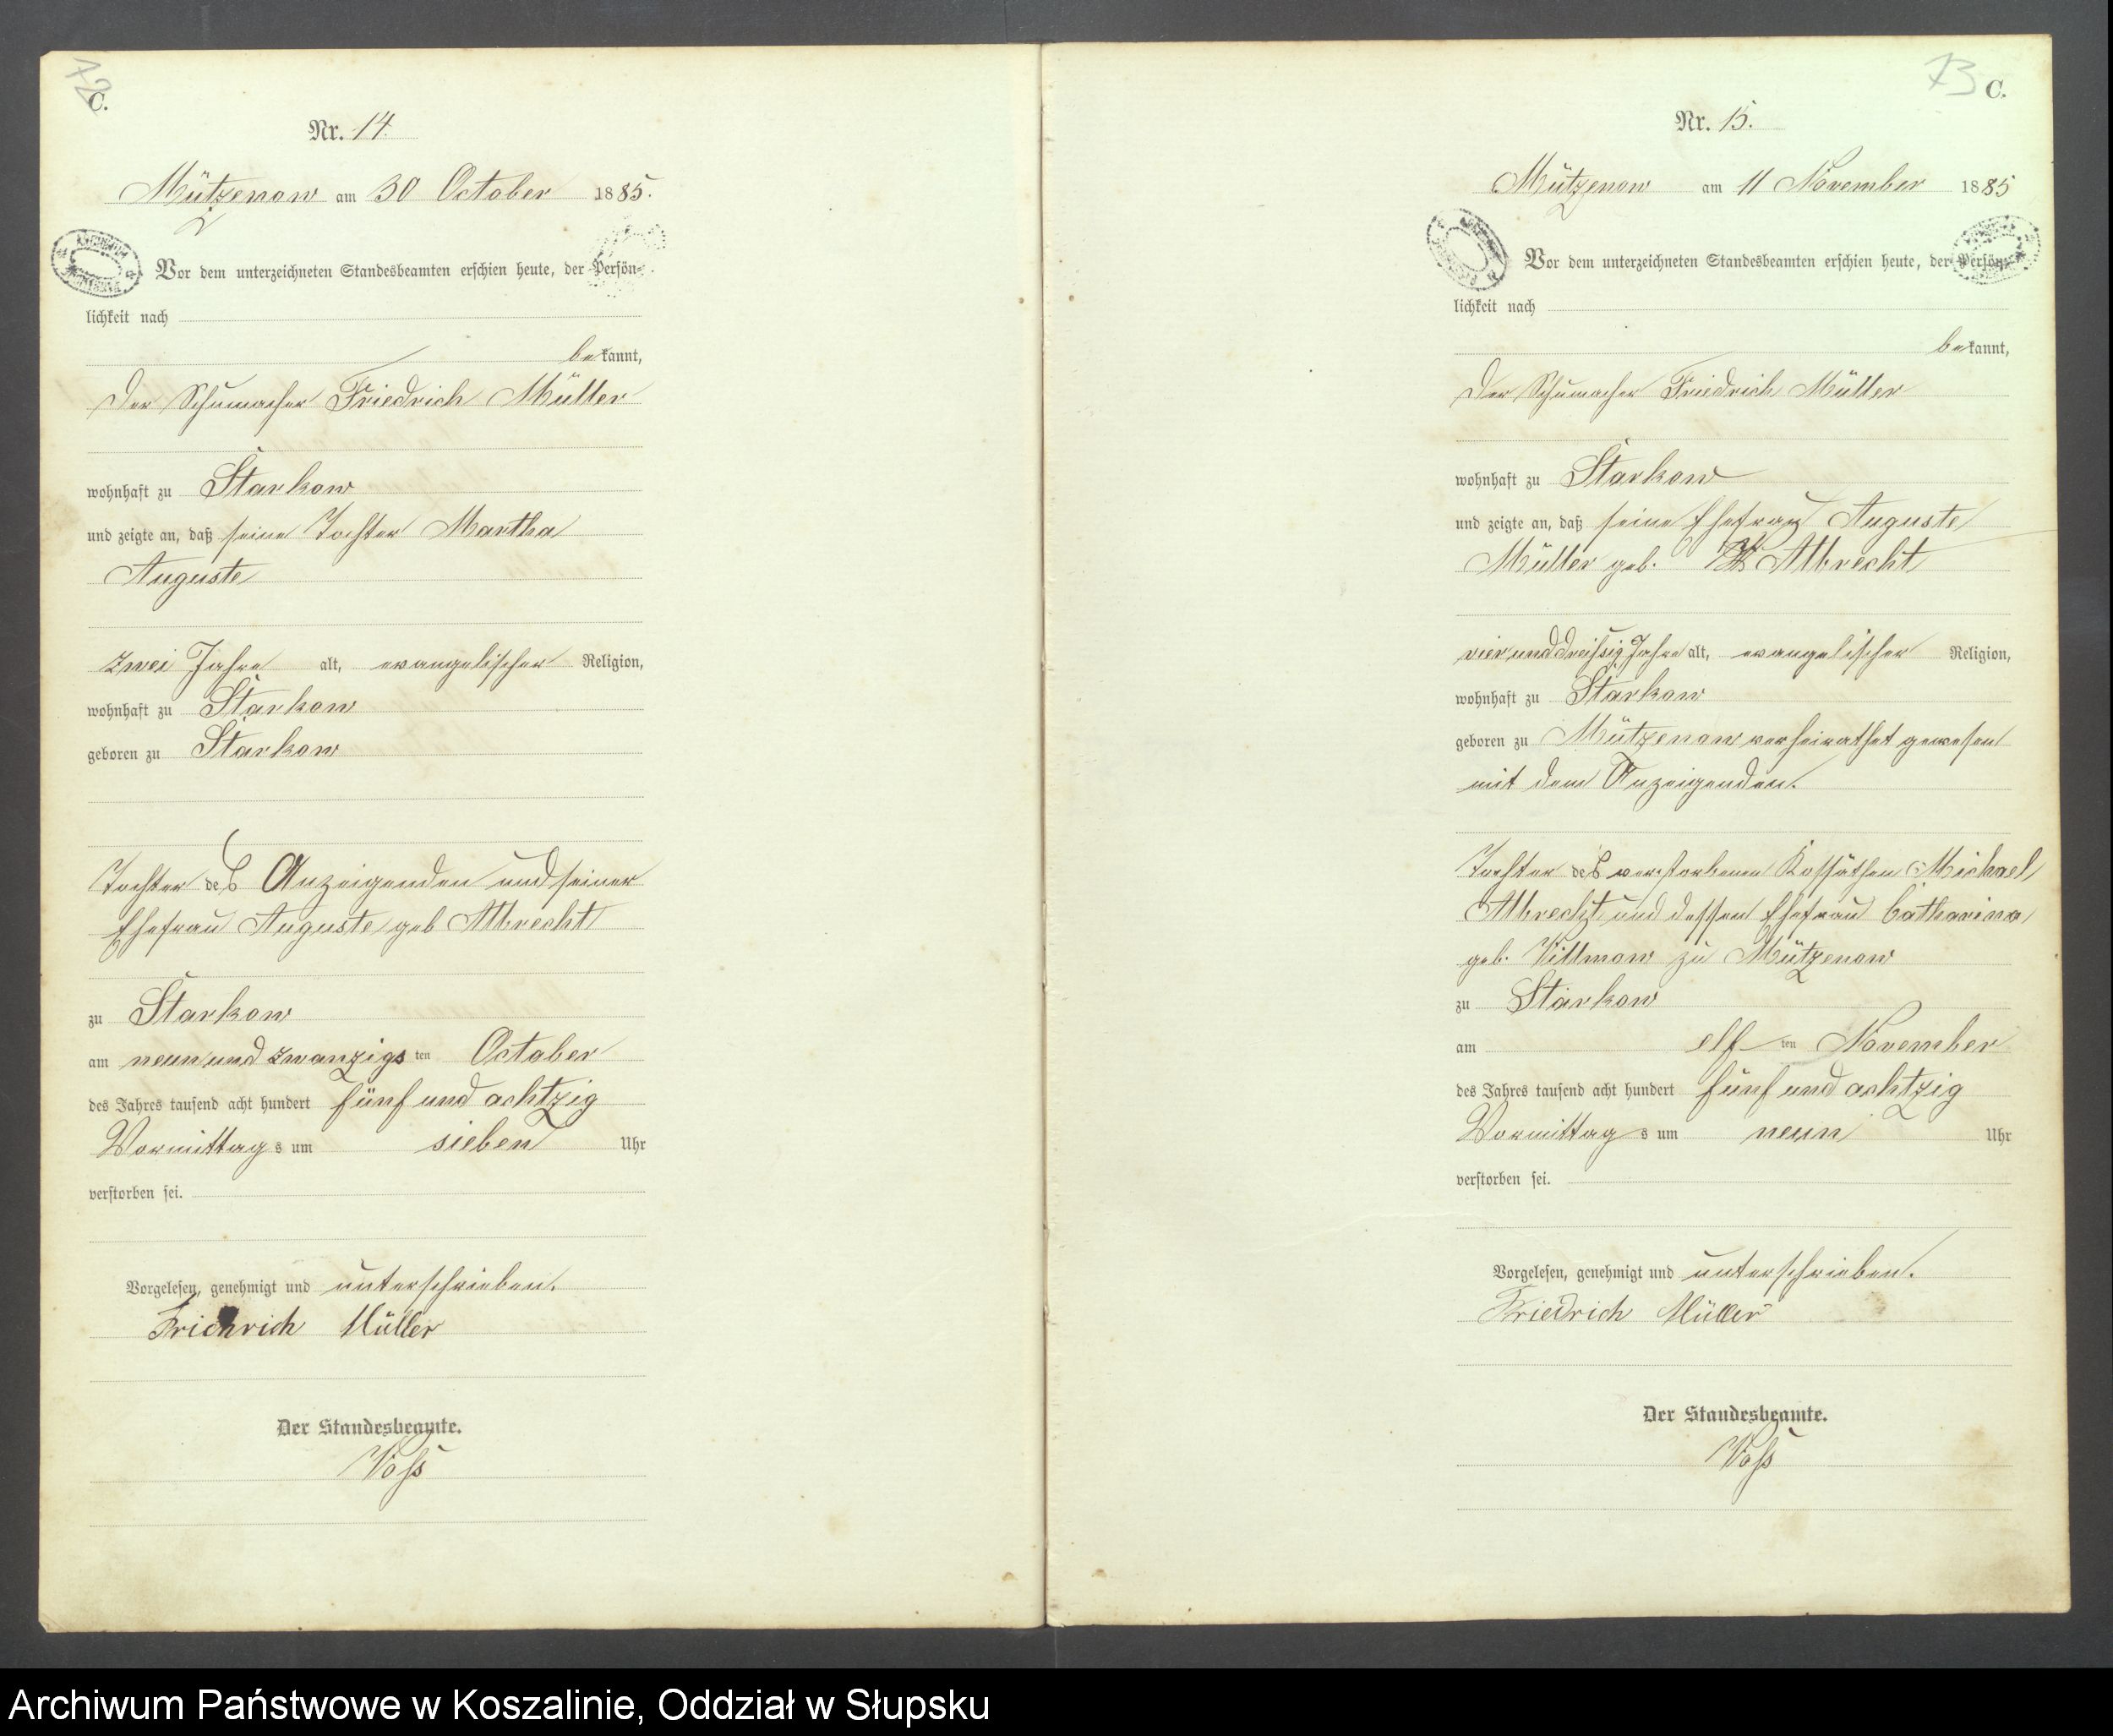 72
C.
Nr. 14.
Mützenow am 30 October 1885.
Vor dem unterzeichneten Standesbeamten erschien heute, der Persön-
lichkeit nach
bekannt,
der Schumacher Friedrich Müller
wohnhaft zu Starkow
und zeigte an, daß seine Tochter Martha
Auguste
zwei Jahre alt, evangelischer Religion,
wohnhaft zu Starkow
geboren zu Starkow
Tochter des Anzeigenden und seiner
Ehefrau Auguste geb Albrecht
zu Starkow
am neun und zwanzigsten October
des Jahres tausend acht hundert fünf und achtzig
Vormittags um sieben Uhr
verstorben sei.
Vorgelesen, genehmigt und unterschrieben.
Friedrich Müller
Der Standesbeamte.
Voss
73
C.
Nr. 15.
Mützenow am 11 November 1885
Vor dem unterzeichneten Standesbeamten erschien heute, der Persön-
lichkeit nach
bekannt,
der Schumacher Friedrich Müller
wohnhaft zu Starkow
und zeigte an, daß seine Ehefrau Auguste
Müller geb. Albrecht
vier und dreissig Jahre alt, evangelischer Religion,
wohnhaft zu Starkow
geboren zu Mützenow verheirathet gewesen
mit dem Anzeigenden.
Tochter des verstorbenen Kossäthen Michael
Albrecht und dessen Ehefrau Catharina
geb. Villmow zu Mützenow
zu Starkow
am elften November
des Jahres tausend acht hundert fünf und achtzig
Vormittags um neun Uhr
verstorben sei.
Vorgelesen, genehmigt und unterschrieben.
Friedrich Müller
Der Standesbeamte.
Voss
Archiwum Państwowe w Koszalinie, Oddział w Słupsku